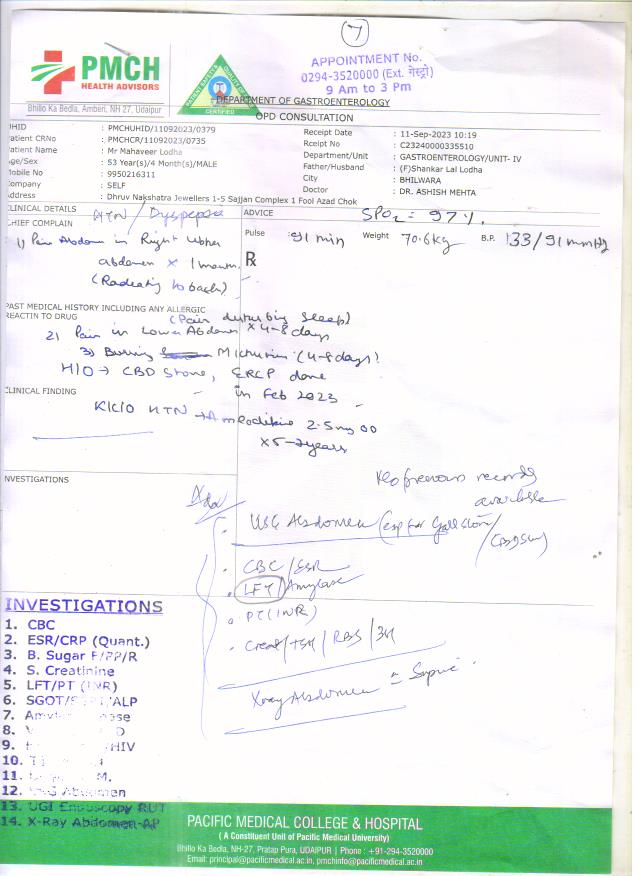 7
PMCH
HEALTH ADVISORS
Bhillo Ka Bedla, Amberi, NH 27, Udaipur
CERTIFIED
APPOINTMENT No.
0294-3520000 (Ext. गेस्ट्रो)
9 Am to 3 Pm
DEPARTMENT OF GASTROENTEROLOGY
OPD CONSULTATION
UHID : PMCHUHID/11092023/0379
Receipt Date : 11-Sep-2023 10:19
Patient CRNo : PMCHCR/11092023/0735
Rceipt No : C23240000335510
Patient Name : Mr Mahaveer Lodha
Department/Unit : GASTROENTEROLOGY/UNIT- IV
Age/Sex : 53 Year(s)/4 Month(s)/MALE
Father/Husband : (F)Shankar Lal Lodha
Mobile No : 9950216311
City : BHILWARA
Company : SELF
Doctor : DR. ASHISH MEHTA
Address : Dhruv Nakshatra Jewellers 1-5 Sajjan Complex 1 Fool Azad Chok
CLINICAL DETAILS HTN / Dyspepsia
ADVICE SPO2 = 97%.
CHIEF COMPLAIN
Pulse : 91 min Weight 70.6kg B.P. 133/91 mmHg
1) Pain Abdomen in Right upper
abdomen x 1 month
(Radiating to back)
Rx
PAST MEDICAL HISTORY INCLUDING ANY ALLERGIC
REACTIN TO DRUG
(Pain disturbing sleep)
2) Pain in Lower Abdomen x 4-8 days
3) Burning Micturition (4-8 days)
H/O → CBD Stone, ERCP done
in Feb 2023
CLINICAL FINDING
K/C/O HTN → Amlodipine 2.5mg OD
x 5-7 years
INVESTIGATIONS
No previous records
available
Adv
USG Abdomen (esp for Gall Stone / CBD Stone)
CBC/ESR
LFT/Amylase
PT(INR)
Creat/TSH/RBS/
X-ray Abdomen Supine
INVESTIGATIONS
1. CBC
2. ESR/CRP (Quant.)
3. B. Sugar F/PP/R
4. S. Creatinine
5. LFT/PT (INR)
6. SGOT/SGPT/ALP
7.
8.
9. HIV
10.
11. M.
12. USG Abdomen
13. UGI Endoscopy RUT
14. X-Ray Abdomen-AP
PACIFIC MEDICAL COLLEGE & HOSPITAL
( A Constituent Unit of Pacific Medical University)
Bhillo Ka Bedla, NH-27, Pratap Pura, UDAIPUR | Phone : +91-294-3520000
Email: principal@pacificmedical.ac.in, pmchinfo@pacificmedical.ac.in